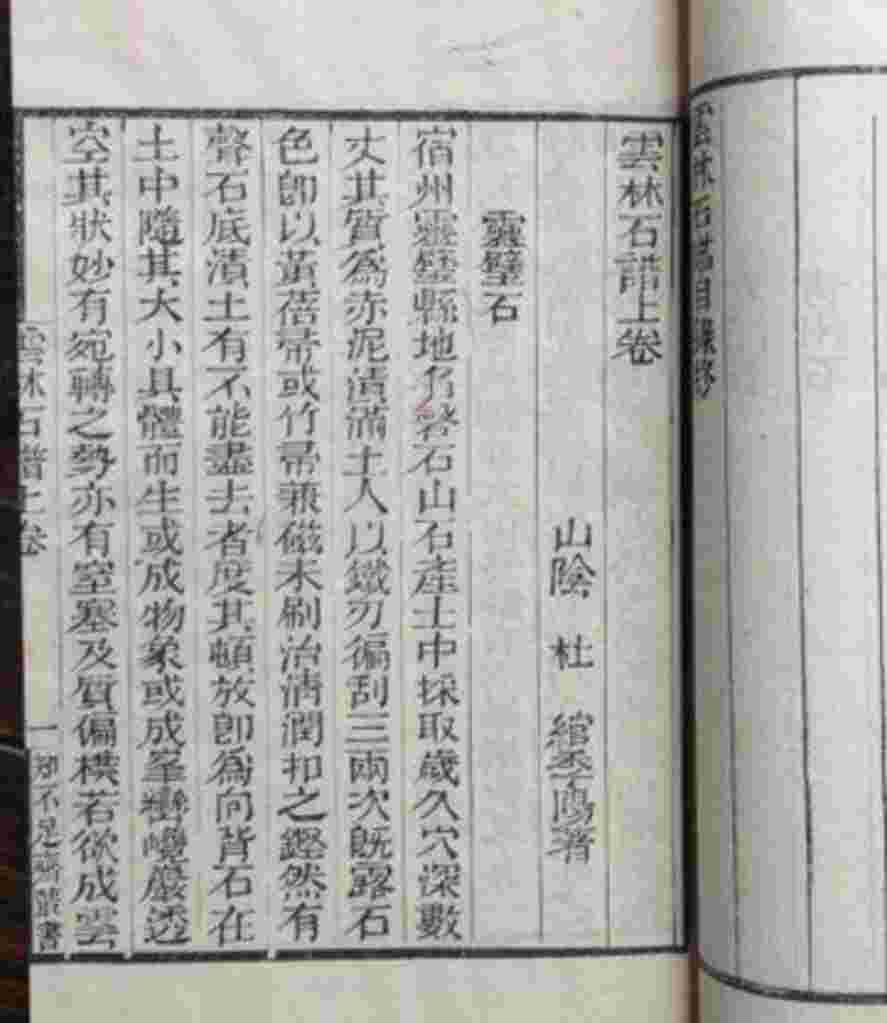 雲林石譜目錄終
雲林石譜上卷
山陰 杜 綰季陽著
靈璧石
宿州靈璧縣地名磬石山石產土中採取歲久穴深數
丈其質為赤泥漬滿土人以鐵刃徧刮三兩次既露石
色卽以黃蓓帚或竹帚兼磁末刷治淸潤扣之鏗然有
聲石底漬土有不能盡去者度其頓放卽為向背石在
土中隨其大小具體而生或成物象或成峯巒巉巖透
空其狀妙有宛轉之勢亦有窒塞及質偏橫若欲成雲
雲林石譜上卷
一
知不足齋叢書